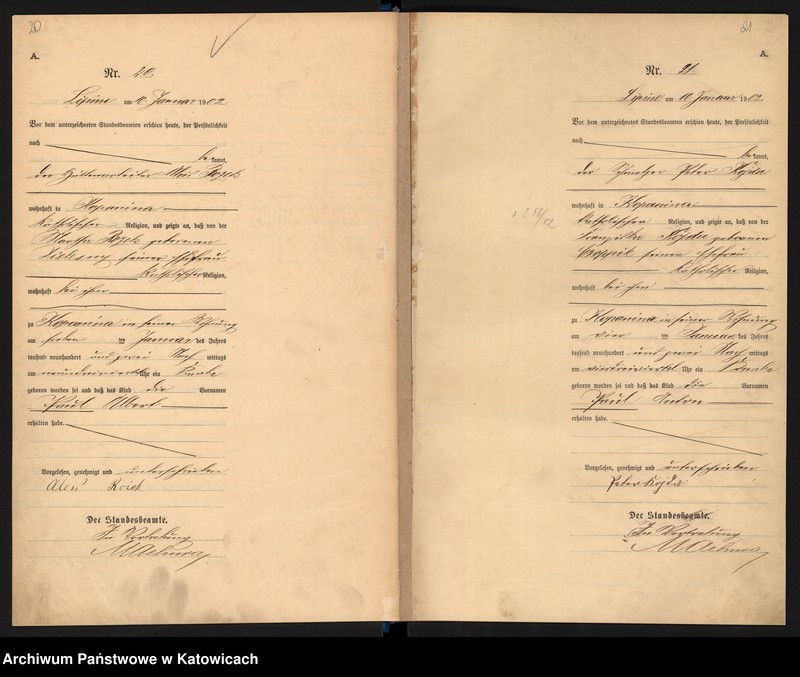 20
A.
Nr. 20.
Lipine am 10. Januar 1902
Vor dem unterzeichneten Standesbeamten erschien heute, der Persönlichkeit
nach
be kannt,
der Hüttenarbeiter
wohnhaft in Klopanina
katholischer Religion, und zeigte an, daß von der
geborenen
seiner Ehefrau
katholischer Religion,
wohnhaft bei ihm
zu Klopanina in seiner Wohnung
am sieben ten Januar des Jahres
tausend neunhundert und zwei Nach mittags
um Uhr ein Knabe
geboren worden sei und daß das Kind die Vornamen
Paul Albert
erhalten habe.
Vorgelesen, genehmigt und unterschrieben
Der Standesbeamte.
In Vertretung
21
A.
Nr. 21.
Lipine am 10. Januar 1902
Vor dem unterzeichneten Standesbeamten erschien heute, der Persönlichkeit
nach
be kannt,
der Schmelzer Peter Kojda
wohnhaft in Klopanina
katholischer Religion, und zeigte an, daß von der
Franziska Kojda geborenen
seiner Ehefrau
katholischer Religion,
wohnhaft bei ihm
zu Klopanina in seiner Wohnung
am vier ten Januar des Jahres
tausend neunhundert und zwei Nach mittags
um Uhr ein Knabe
geboren worden sei und daß das Kind die Vornamen
Paul Anton
erhalten habe.
Vorgelesen, genehmigt und unterschrieben
Peter Kojda
Der Standesbeamte.
In Vertretung
Archiwum Państwowe w Katowicach